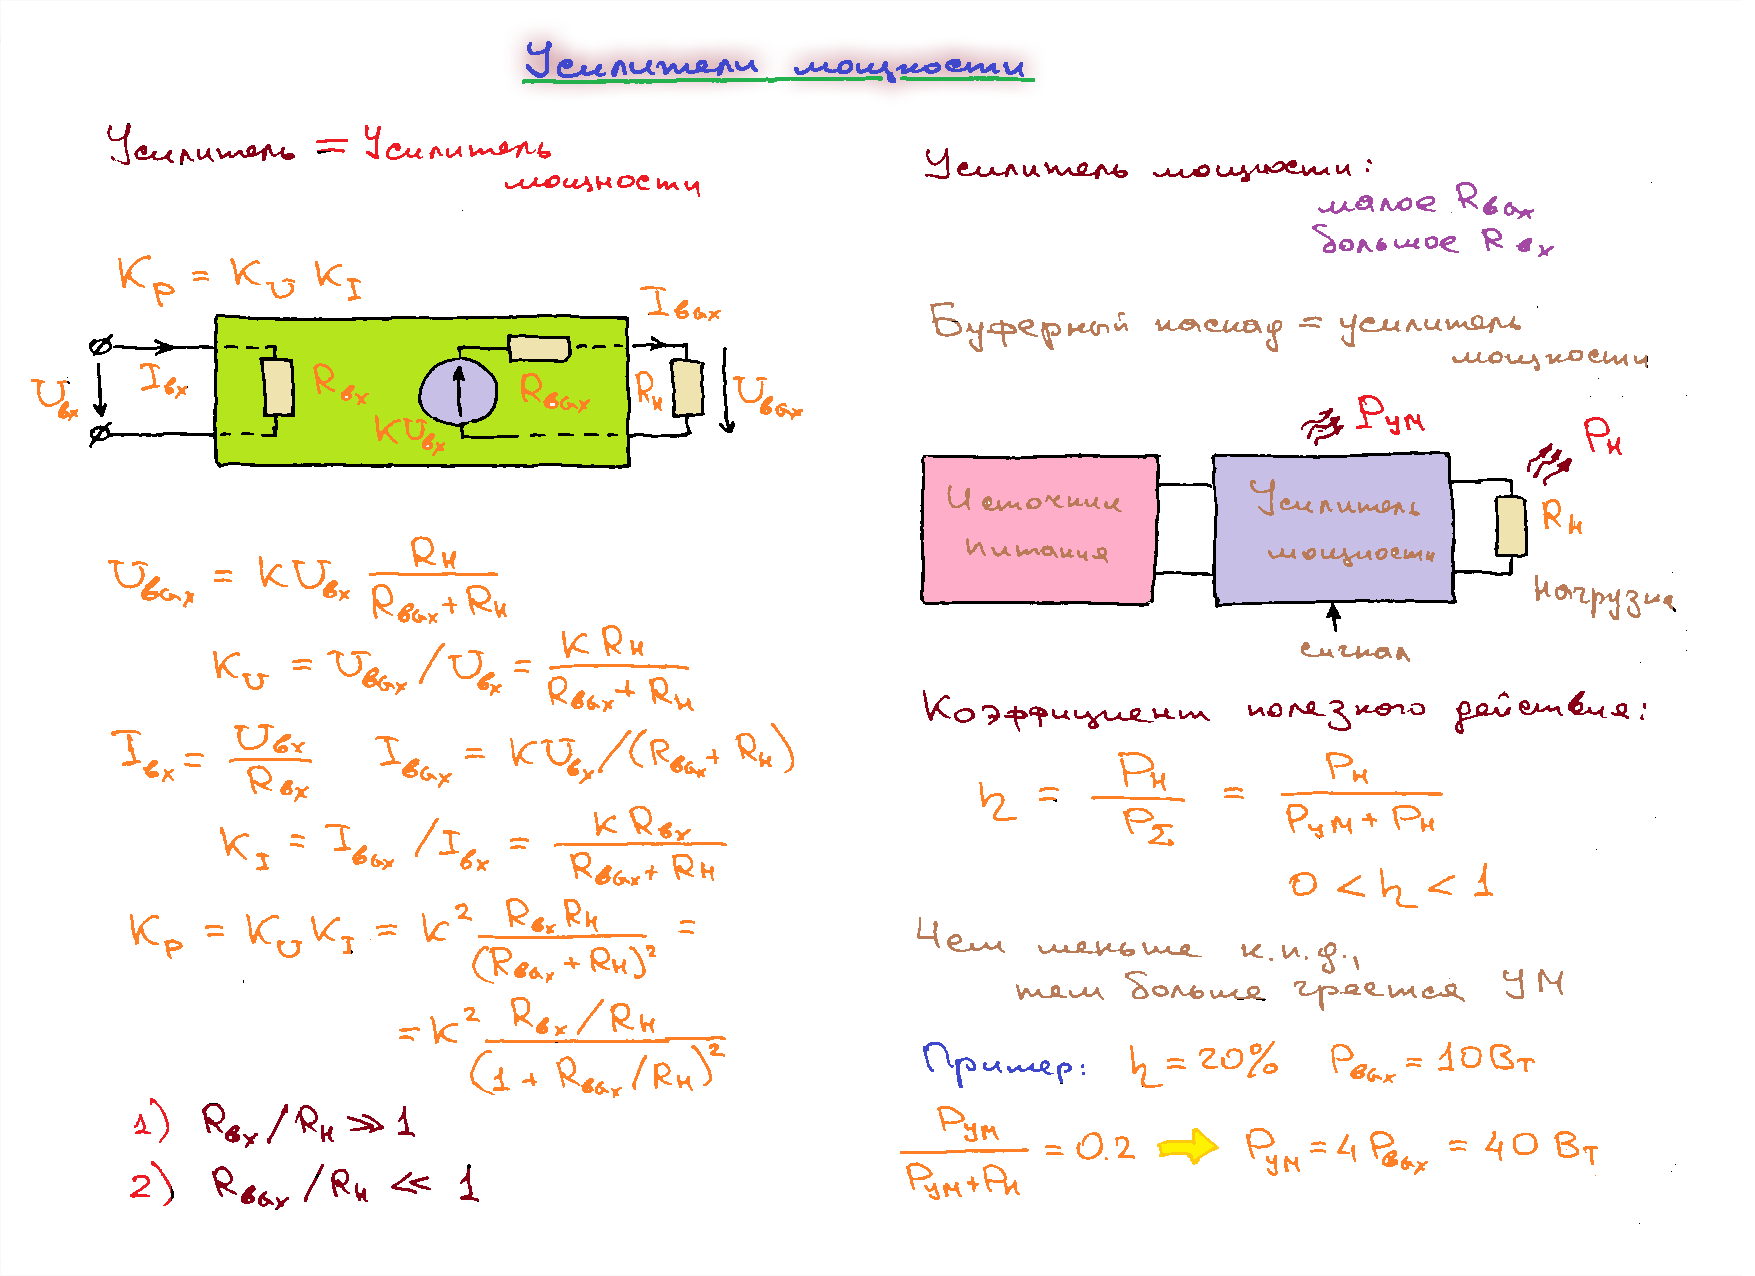 Усилители мощности
Усилитель = Усилитель
мощности
K_P = K_U K_I
I_вх
U_вх
R_вх
K U_вх
R_вых
I_вых
R_н
U_вых
U_вых = K U_вх R_н / (R_вых + R_н)
K_U = U_вых / U_вх = K R_н / (R_вых + R_н)
I_вх = U_вх / R_вх   I_вых = K U_вх / (R_вых + R_н)
K_I = I_вых / I_вх = K R_вх / (R_вых + R_н)
K_P = K_U K_I = K² R_вх R_н / (R_вых + R_н)² =
= K² (R_вх / R_н) / (1 + R_вых / R_н)²
1) R_вх / R_н ≫ 1
2) R_вых / R_н ≪ 1
Усилитель мощности:
малое R_вых
большое R_вх
Буферный каскад = усилитель
мощности
P_УМ
P_н
Источник
питания
Усилитель
мощности
R_н
нагрузка
сигнал
Коэффициент полезного действия:
η = P_н / P_Σ = P_н / (P_УМ + P_н)
0 < η < 1
Чем меньше к.п.д.,
тем больше греется УМ
Пример: η = 20% P_вых = 10 Вт
P_УМ / (P_УМ + P_н) = 0.2 ➡ P_УМ = 4 P_вых = 40 Вт